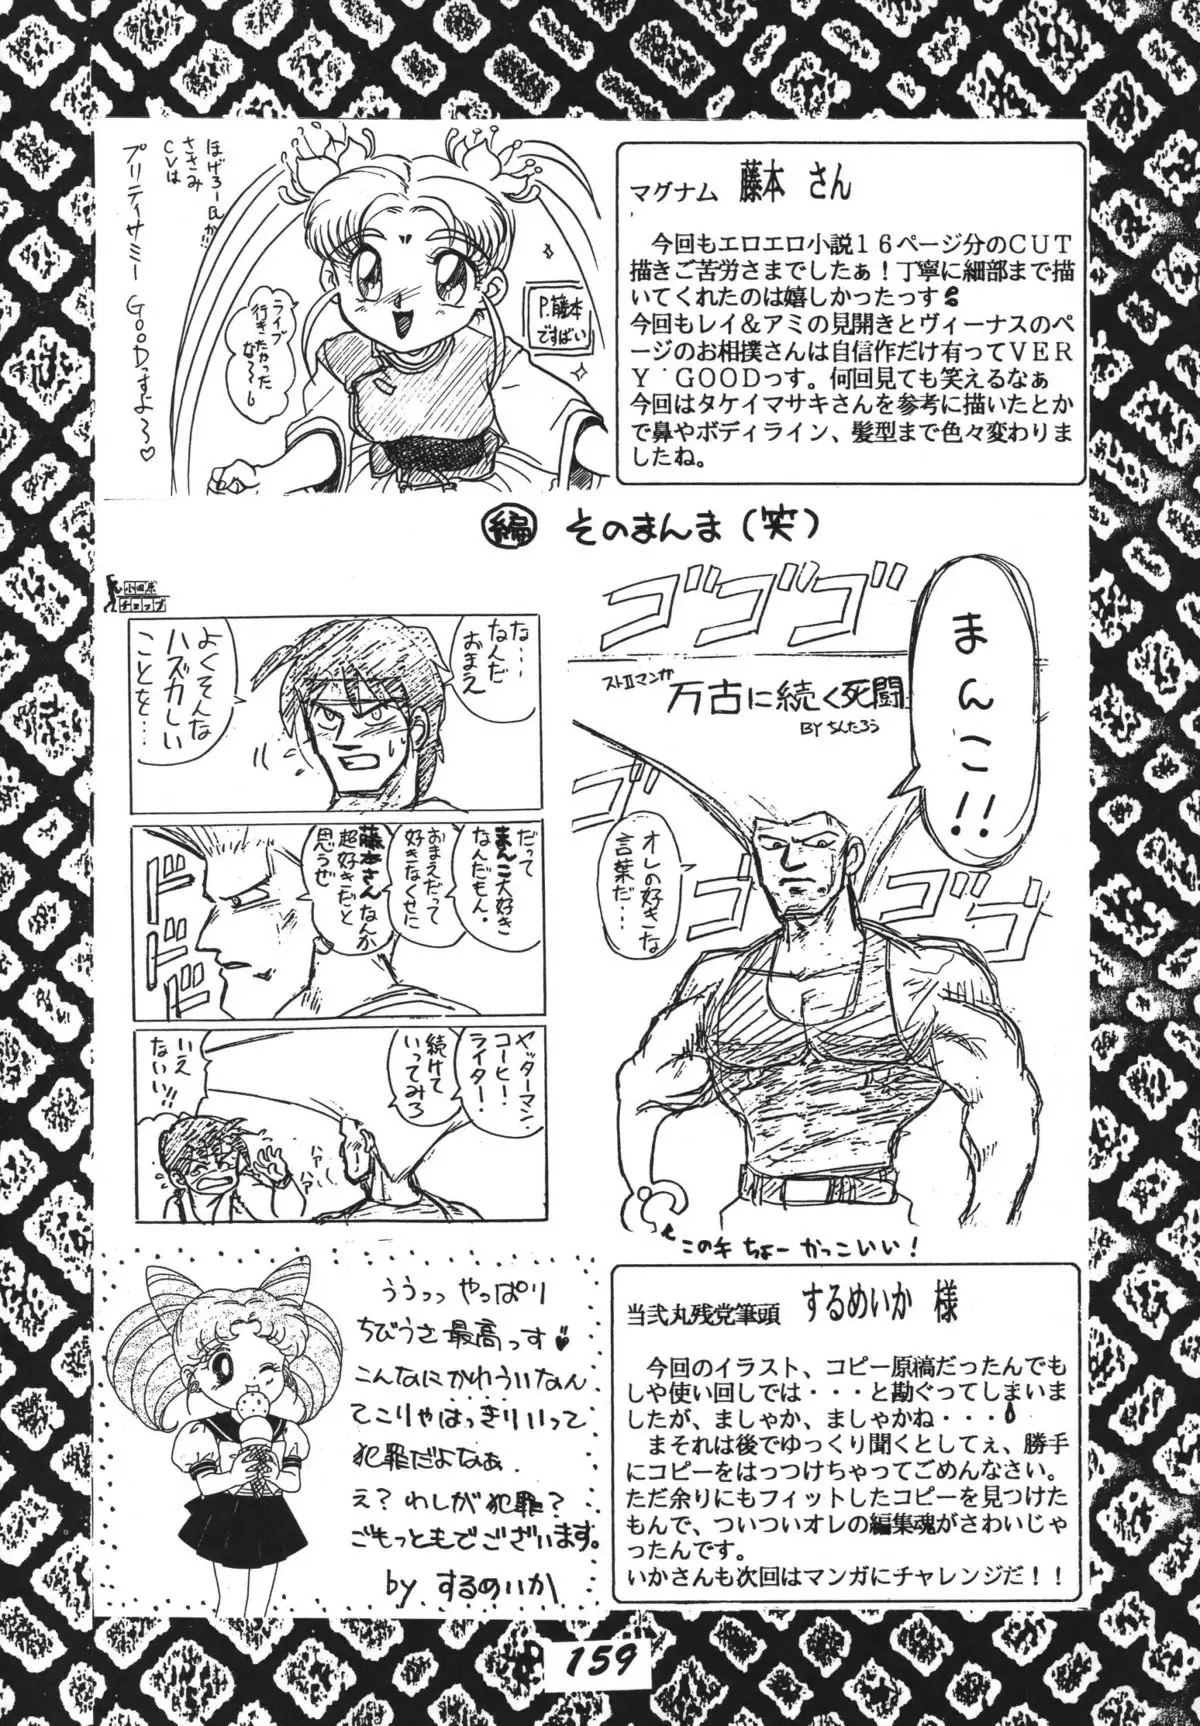 ほげろー氏が!!
ささみ
CVは
プリティサミー GOODっすよ〜♡
ライブ
行きたかった
な〜〜し
P.藤本
ですばい
マグナム 藤本 さん
今回もエロエロ小説16ページ分のCUT
描きご苦労さまでしたぁ!丁寧に細部まで描
いてくれたのは嬉しかったっす
今回もレイ&アミの見開きとヴィーナスのペ
ージのお相撲さんは自信作だけ有ってVER
Y GOODっす。何回見ても笑えるなぁ
今回はタケイマサキさんを参考に描いたとか
で鼻やボディライン、髪型まで色々変わりま
したね。
編 そのまんま(笑)
ゴゴゴ
まんこ!!
ストIIマンガ
万古に続く死闘
BY ちんたろう
ゴゴ
オレの好きな
言葉だ…
ゴゴゴ
このキちょーかっこいい!
小田原
チョップ
な…
なんだ
おまえ
よくそんな
ハズカしい
ことを…
だって
まんこ大好き
なんだもん。
おまえだって
好きなくせに
藤本さんなんか
超好きだと
思うぜ
ドドド
ヤッターマン
コーヒー
ライター
続けて
いってみろ
ハァ
ハァ
いえ
ないい!!
ううっっ やっぱり
ちびうさ最高っす♥
こんなにかわういなん
てこりゃはっきりいって
犯罪だよなぁ
え?わしが犯罪?
ごもっともでございます。
by するめいか
当弐丸残党筆頭 するめいか 様
今回のイラスト、コピー原稿だったんでも
しや使い回しでは・・・と勘ぐってしまいま
したが、ましゃか、ましゃかね・・・
まそれは後でゆっくり聞くとしてぇ、勝手
にコピーをはっつけちゃってごめんなさい。
ただ余りにもフィットしたコピーを見つけた
もんで、ついついオレの編集魂がさわいじゃ
ったんです。
いかさんも次回はマンガにチャレンジだ!!
159